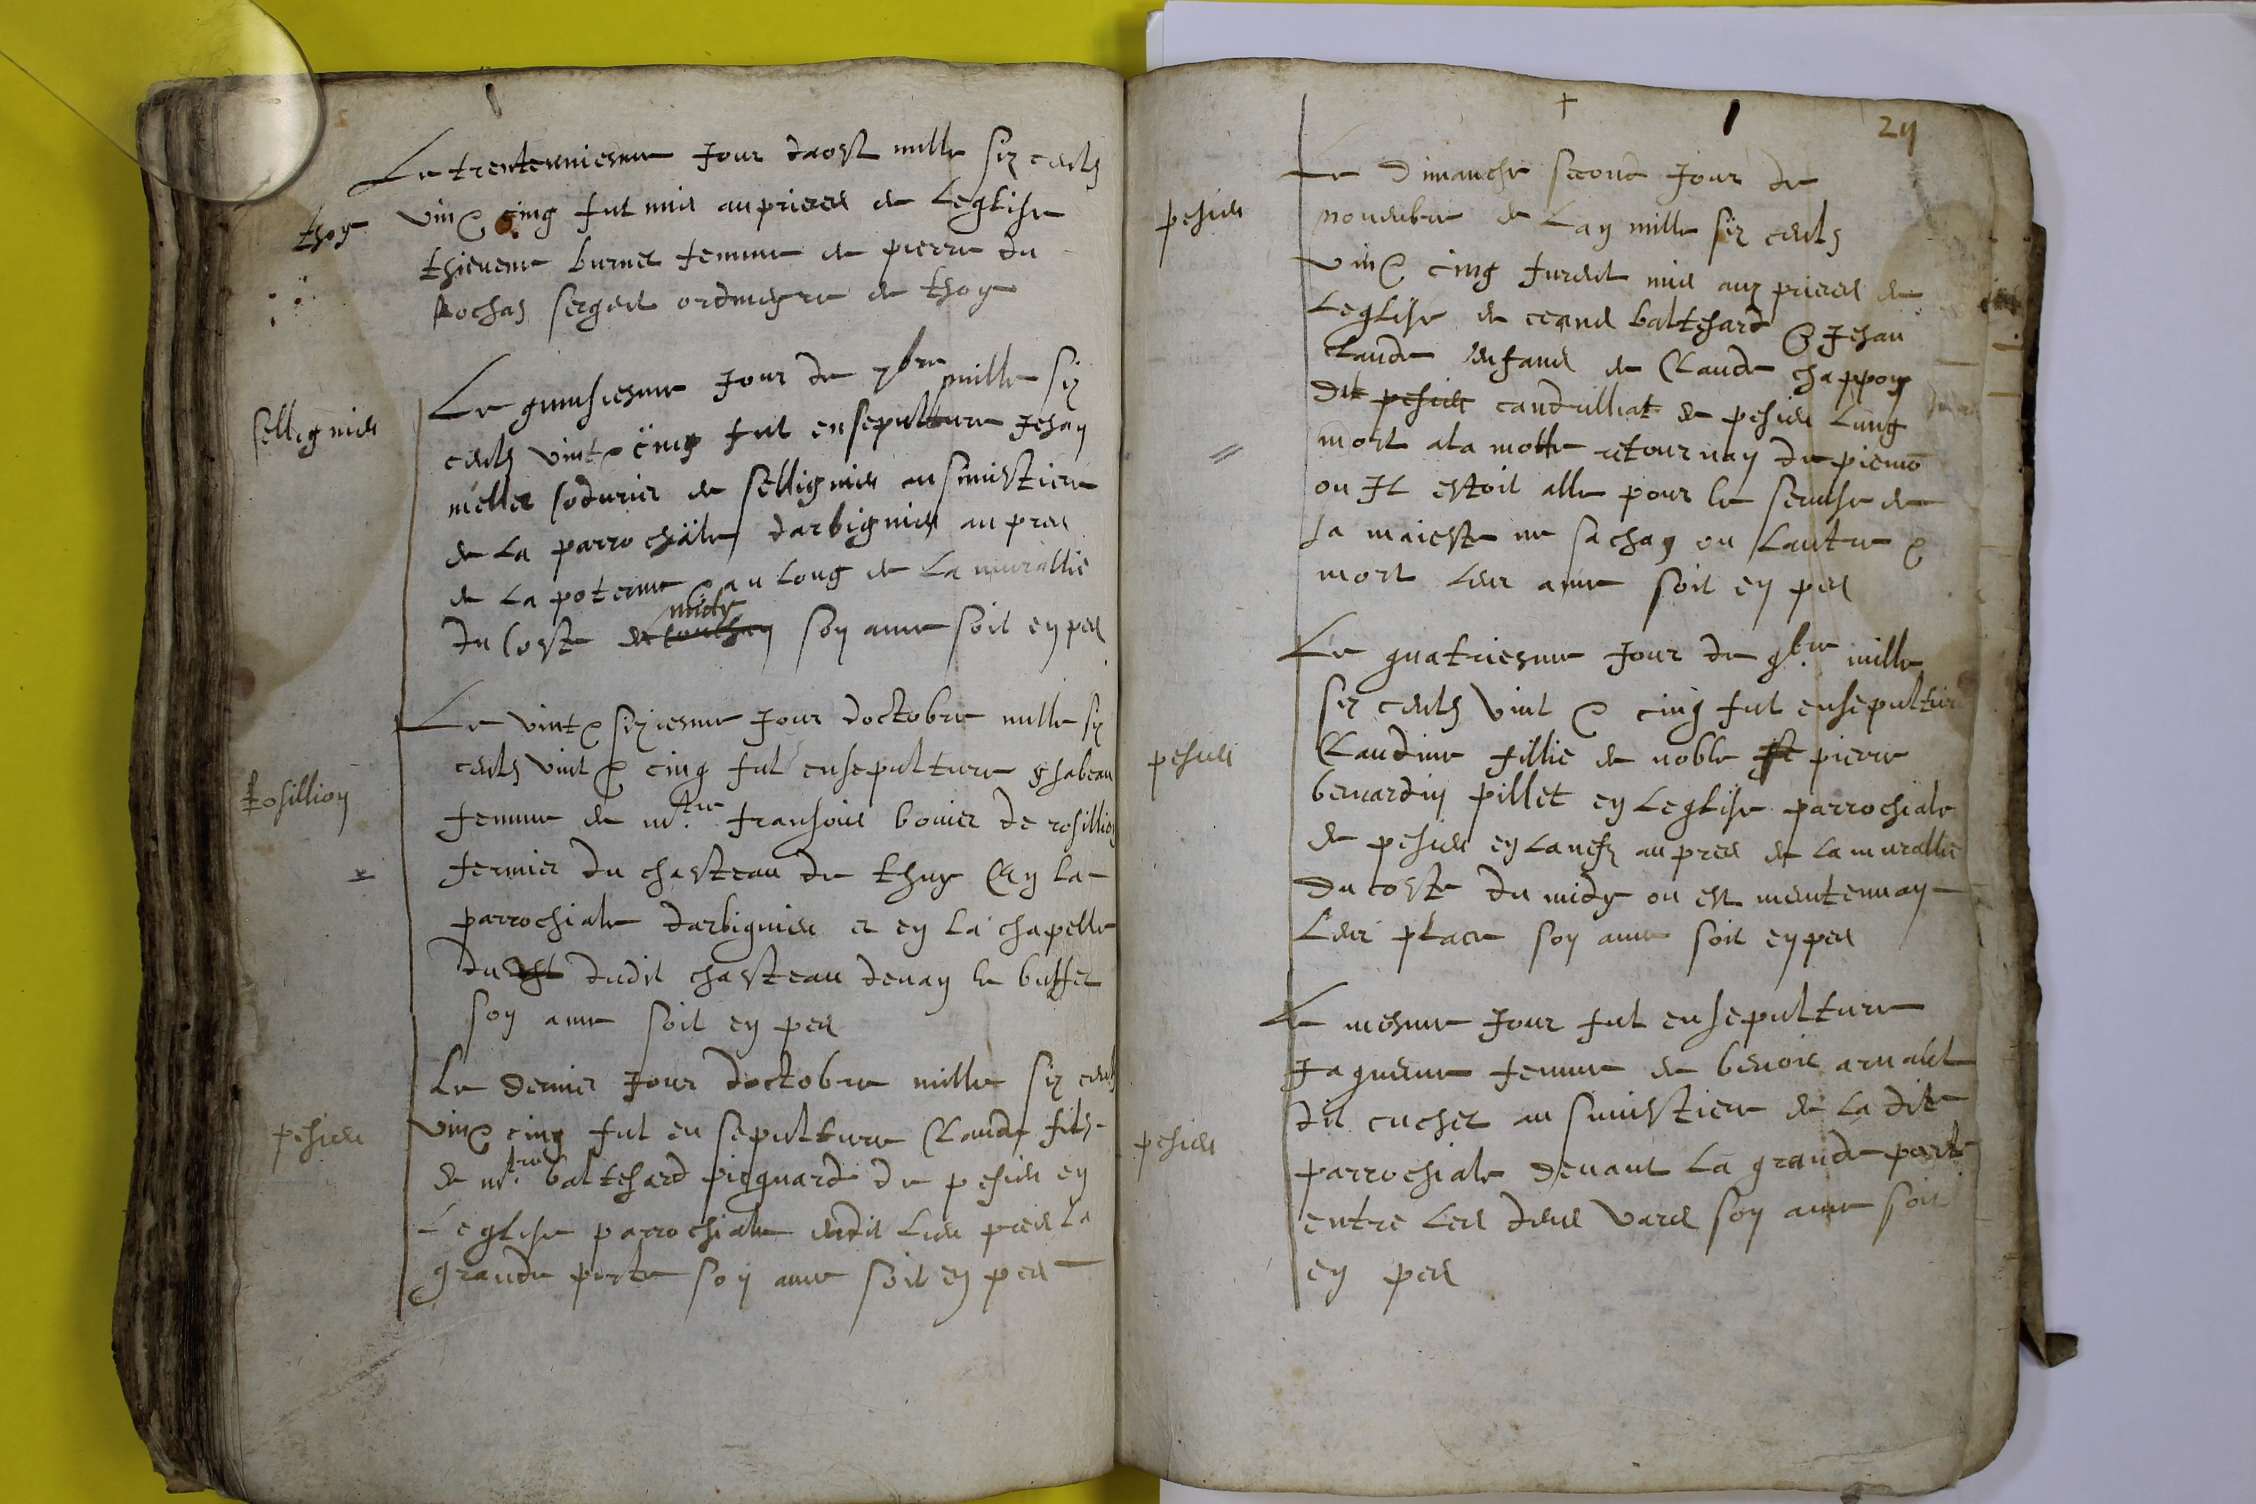 thoy
Le trentenniesme Jour daost mille six cents
vint & cinq fut mis au prieres de Leglise
thievene burnet femme de pierre du
Rochas sergent ordineyre de thoy
sellignieu
Le quinsiesme Jour de 7bre mille six
cents vint & cinq fut ensepulture Jehan
mellet sodurier de sellignieu au simistiere
de La parrochiale darbignieu au pres
de La poterne & au Long de La murallie
du coste midy son ame soit en pes
Rosillion
Le vint & siziesme Jour doctobre mille six
cents vint & cinq fut ensepulture ysabeau
femme de mtre fransois bovier de rosillion
fermier du chasteau de thuy & en La
parrochiale darbignieu et en La chapelle
dudit chasteau devan le buffet
son ame soit en pes
pesieu
Le dernier Jour doctobre mille six cents
vint & cinq fut ensepulture Claude fils
de mtre baltesard picquard de pesieu en
Leglise parrochiale dudit Lieu pres La
grande porte son ame soit en pes
24
pesieu
Le dimanche second Jour de
novembre de Lan mille six cents
vint & cinq furent mis aux prieres de
Leglise de ceans baltesard & Jehan
claude enfans de Claude chappon
dit pesieu candrilliat de pesieu Lung
mort a la motte retournan de piemo
ou Il estoit alle pour le servise de
sa maieste ne sachan ou Lautre &
mort Leur ame soit en pes
pesieu
Le quatriesme Jour de 9bre mille
six cents vint & cinq fut ensepulture
Claudine fillie de noble pierre
bernardin pillet en Leglise parrochiale
de pesieu en La nefz au pres de La murallie
du coste du midy ou est meintennan
Leur place son ame soit en pes
pesieu
Le mesme Jour fut ensepulture
Jaqueme femme de benoit arnault
dit cuchet au simistiere de La dite
parrochiale devant La grande porte
entre Les deus vares son ame soit
en pes